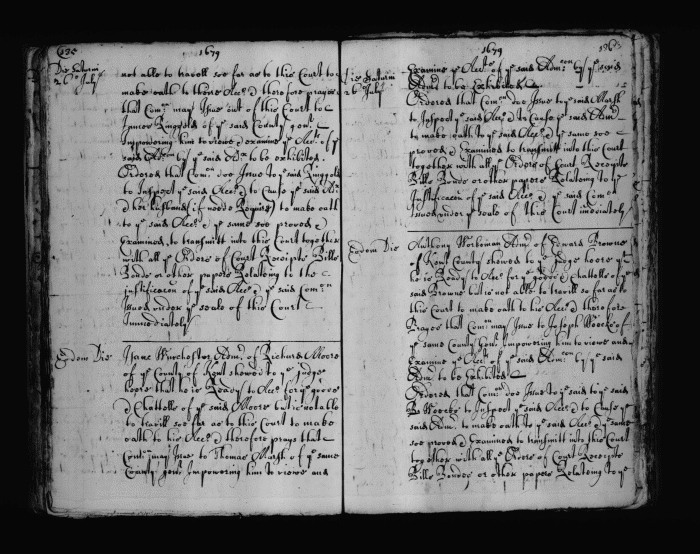 135
1679
Die Saturni
26º July
not able to travell soe far as to this Court to
make oath to theire Accts. & therefore prayes
that Comn. may Issue out of this Court to
James Ringgolds of ye said County gent.
Impowering him to viewe & examine ye Accts. of ye
said by ye said Admx to be exhibited.
Ordered that Comn. doe Issue to ye said Ringgold
to Inspect ye said Acct. & to Cause ye said
& her husband (if neede Require) to make oath
to ye said Acct. & ye same soe proved &
Examined, to transmitt into this Court together
with all ye Orders of Court Receipts Bills
Bonds or other papers Relateing to the
justificacon of ye said Acct. & ye said Comn.
Issued under ye seale of this Court
Immediately
Eodem Die
Isaac Winchester Admr. of Richard Moore
of ye County of Kent shewed to ye Judge
heere that he is Ready to Acct. for ye goods
& Chattells of ye said Moore but is not able
to travill soe far as to this Court to make
oath to his Acct. & therefore prays that
Comn. may Issue to Thomas Marsh of ye same
County gent. Impowering him to viewe and
1679
136
Die Saturni
26º July
Examine ye Accts. of ye said Admr. by ye said
Admr. to be Exhibited
Ordered that Comn. doe Issue to ye said Marsh
to Inspect ye said Acct. & to Cause ye said Admr.
to make oath to ye said Acct. & ye same soe
proved & Examined to transmitt into this Court
together with all ye Orders of Court Receipts
Bills Bonds or other papers Relateing to ye
Justificacon of ye said Acct. & ye said Comn.
Issued under ye seale of this Court imediately
Eodem Die
Anthony Workeman Admr. of Edward Browne
of Kent County shewed to ye Judge heere yt
he is Ready to Acct. for ye goods & Chattells of ye
said Browne but is not able to travill so far as to
this Court to make oath to his Acct. & therefore
Prayes that Comn. may Issue to Joseph Weeckes of
ye same County Gent. Impowering him to viewe and
Examine ye Accts. of ye said Admr. by ye said
Admr. to be Exhibited
Ordered that Comn. doe Issue to ye said to ye said
Weeckes to Inspect ye said Acct. & to Cause ye
said Admr. to make oath to ye said Acct. & ye same
soe proved & Examined to transmitt into this Court
together with all ye Orders of Court Receipts
Bills Bonds or other papers Relateing to ye